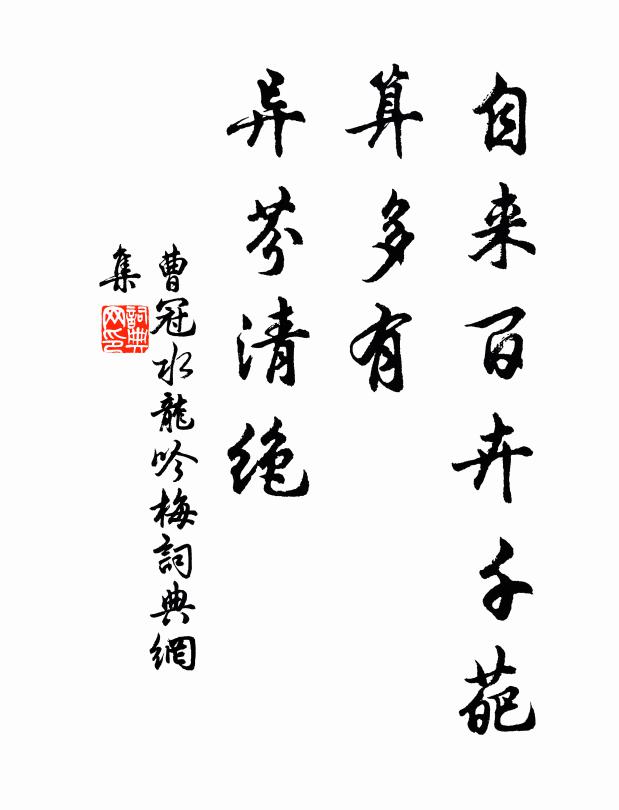 自来百卉千葩
算多有
异芬清绝
曹冠水龍吟梅詞典網
集
詞典
网印